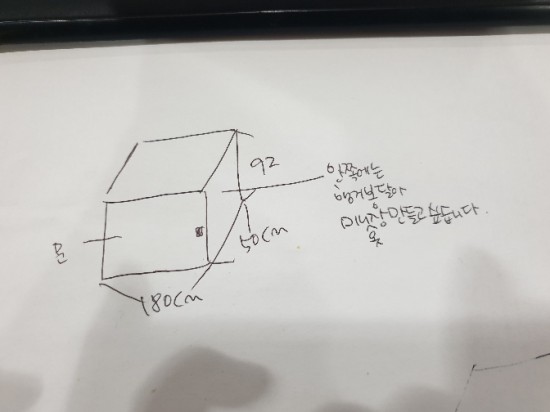 92
안쪽에는
행거봉달아
미니옷장만들고싶습니다.
문
50cm
180cm